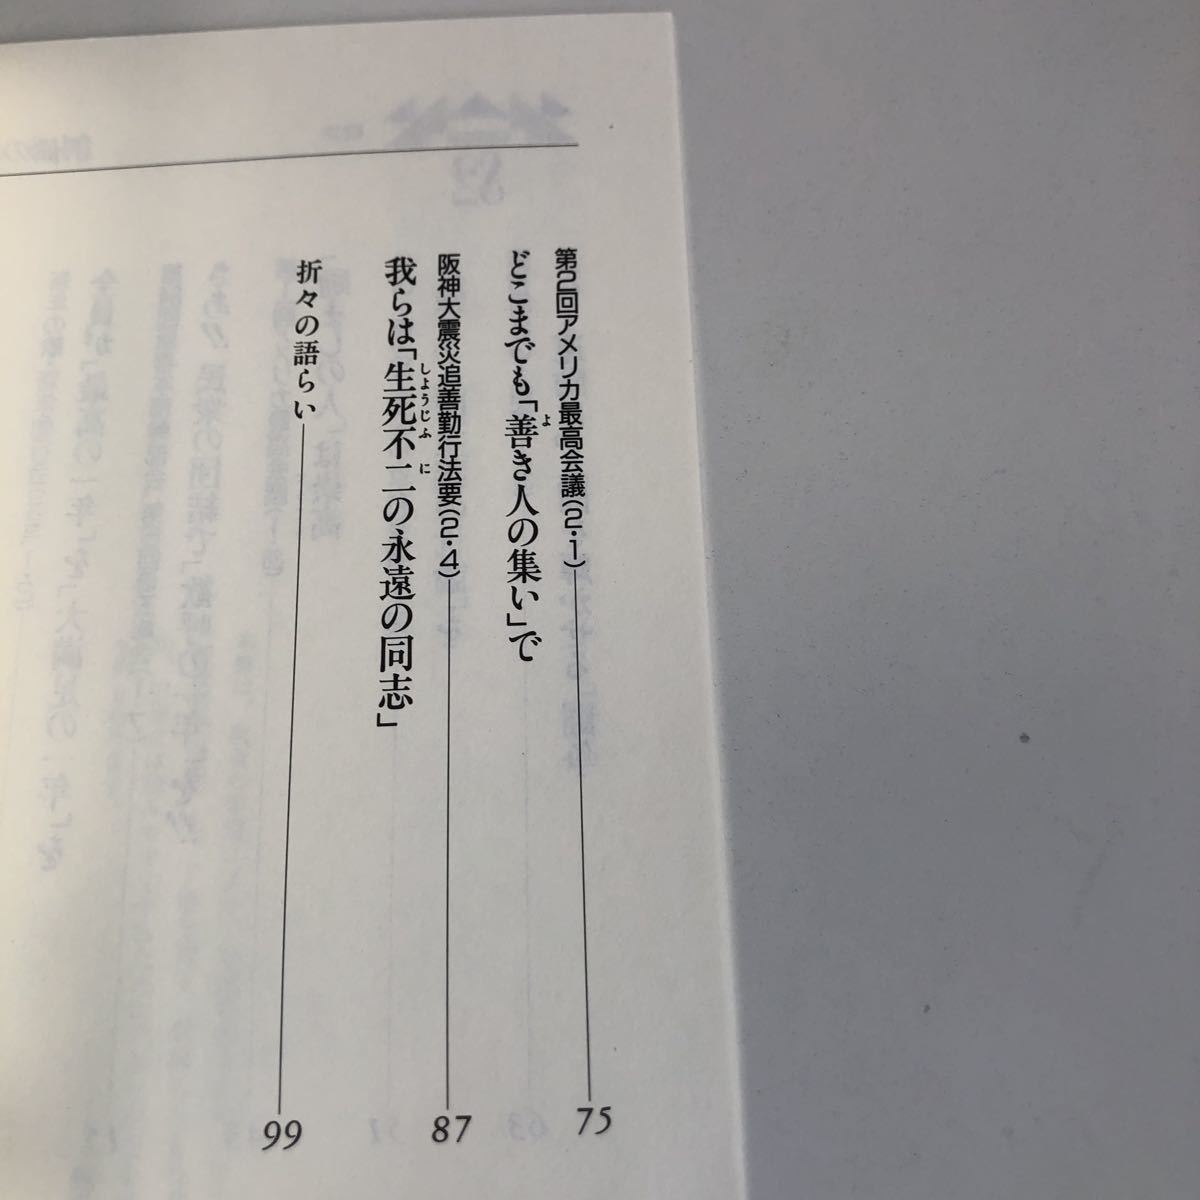 第2回アメリカ最高会議(2・1) 75
どこまでも「善き人の集い」で
よ
阪神大震災追善勤行法要(2・4) 87
我らは「生死不二の永遠の同志」
しょうじふに
折々の語らい 99